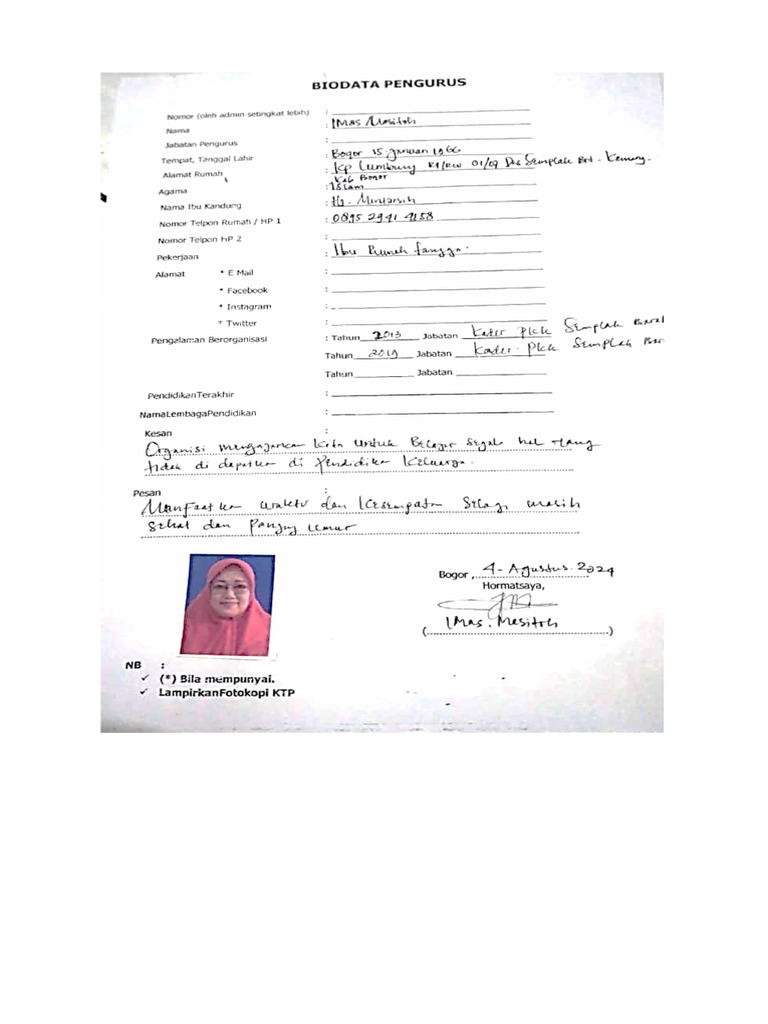 BIODATA PENGURUS
Nomor (oleh admin setingkat lebih) :
Nama : IMas Masitoh
Jabatan Pengurus :
Tempat, Tanggal Lahir : Bogor 15 Januari 1966
Alamat Rumah : Kp Lumbung Rt/Rw 01/09 Ds Semplak Brt - Kemang.
Kab Bogor
Agama : Islam
Nama Ibu Kandung : Hj.
Nomor Telpon Rumah / HP 1 : 0895 2941 4158
Nomor Telpon HP 2 :
Pekerjaan : Ibu Rumah Tangga.
Alamat * E Mail :
* Facebook :
* Instagram :
* Twitter :
Pengalaman Berorganisasi : Tahun 2013 Jabatan Kader PKK Semplak Barat
Tahun 2019 Jabatan Kader PKK Semplak Bar
Tahun Jabatan
PendidikanTerakhir :
NamaLembagaPendidikan :
Kesan :
Organisi mengajarkan Kita Untuk Belajar Segala hal yang
tidak di dapatkan di Pendidikan Keluarga.
Pesan :
Manfaatkan waktu dan Kesempatan Selagi masih
Sehat dan Panjang Umur
Bogor, 4 - Agustus 2024
Hormatsaya,
(IMas. Masitoh)
NB :
✓ (*) Bila mempunyai.
✓ LampirkanFotokopi KTP